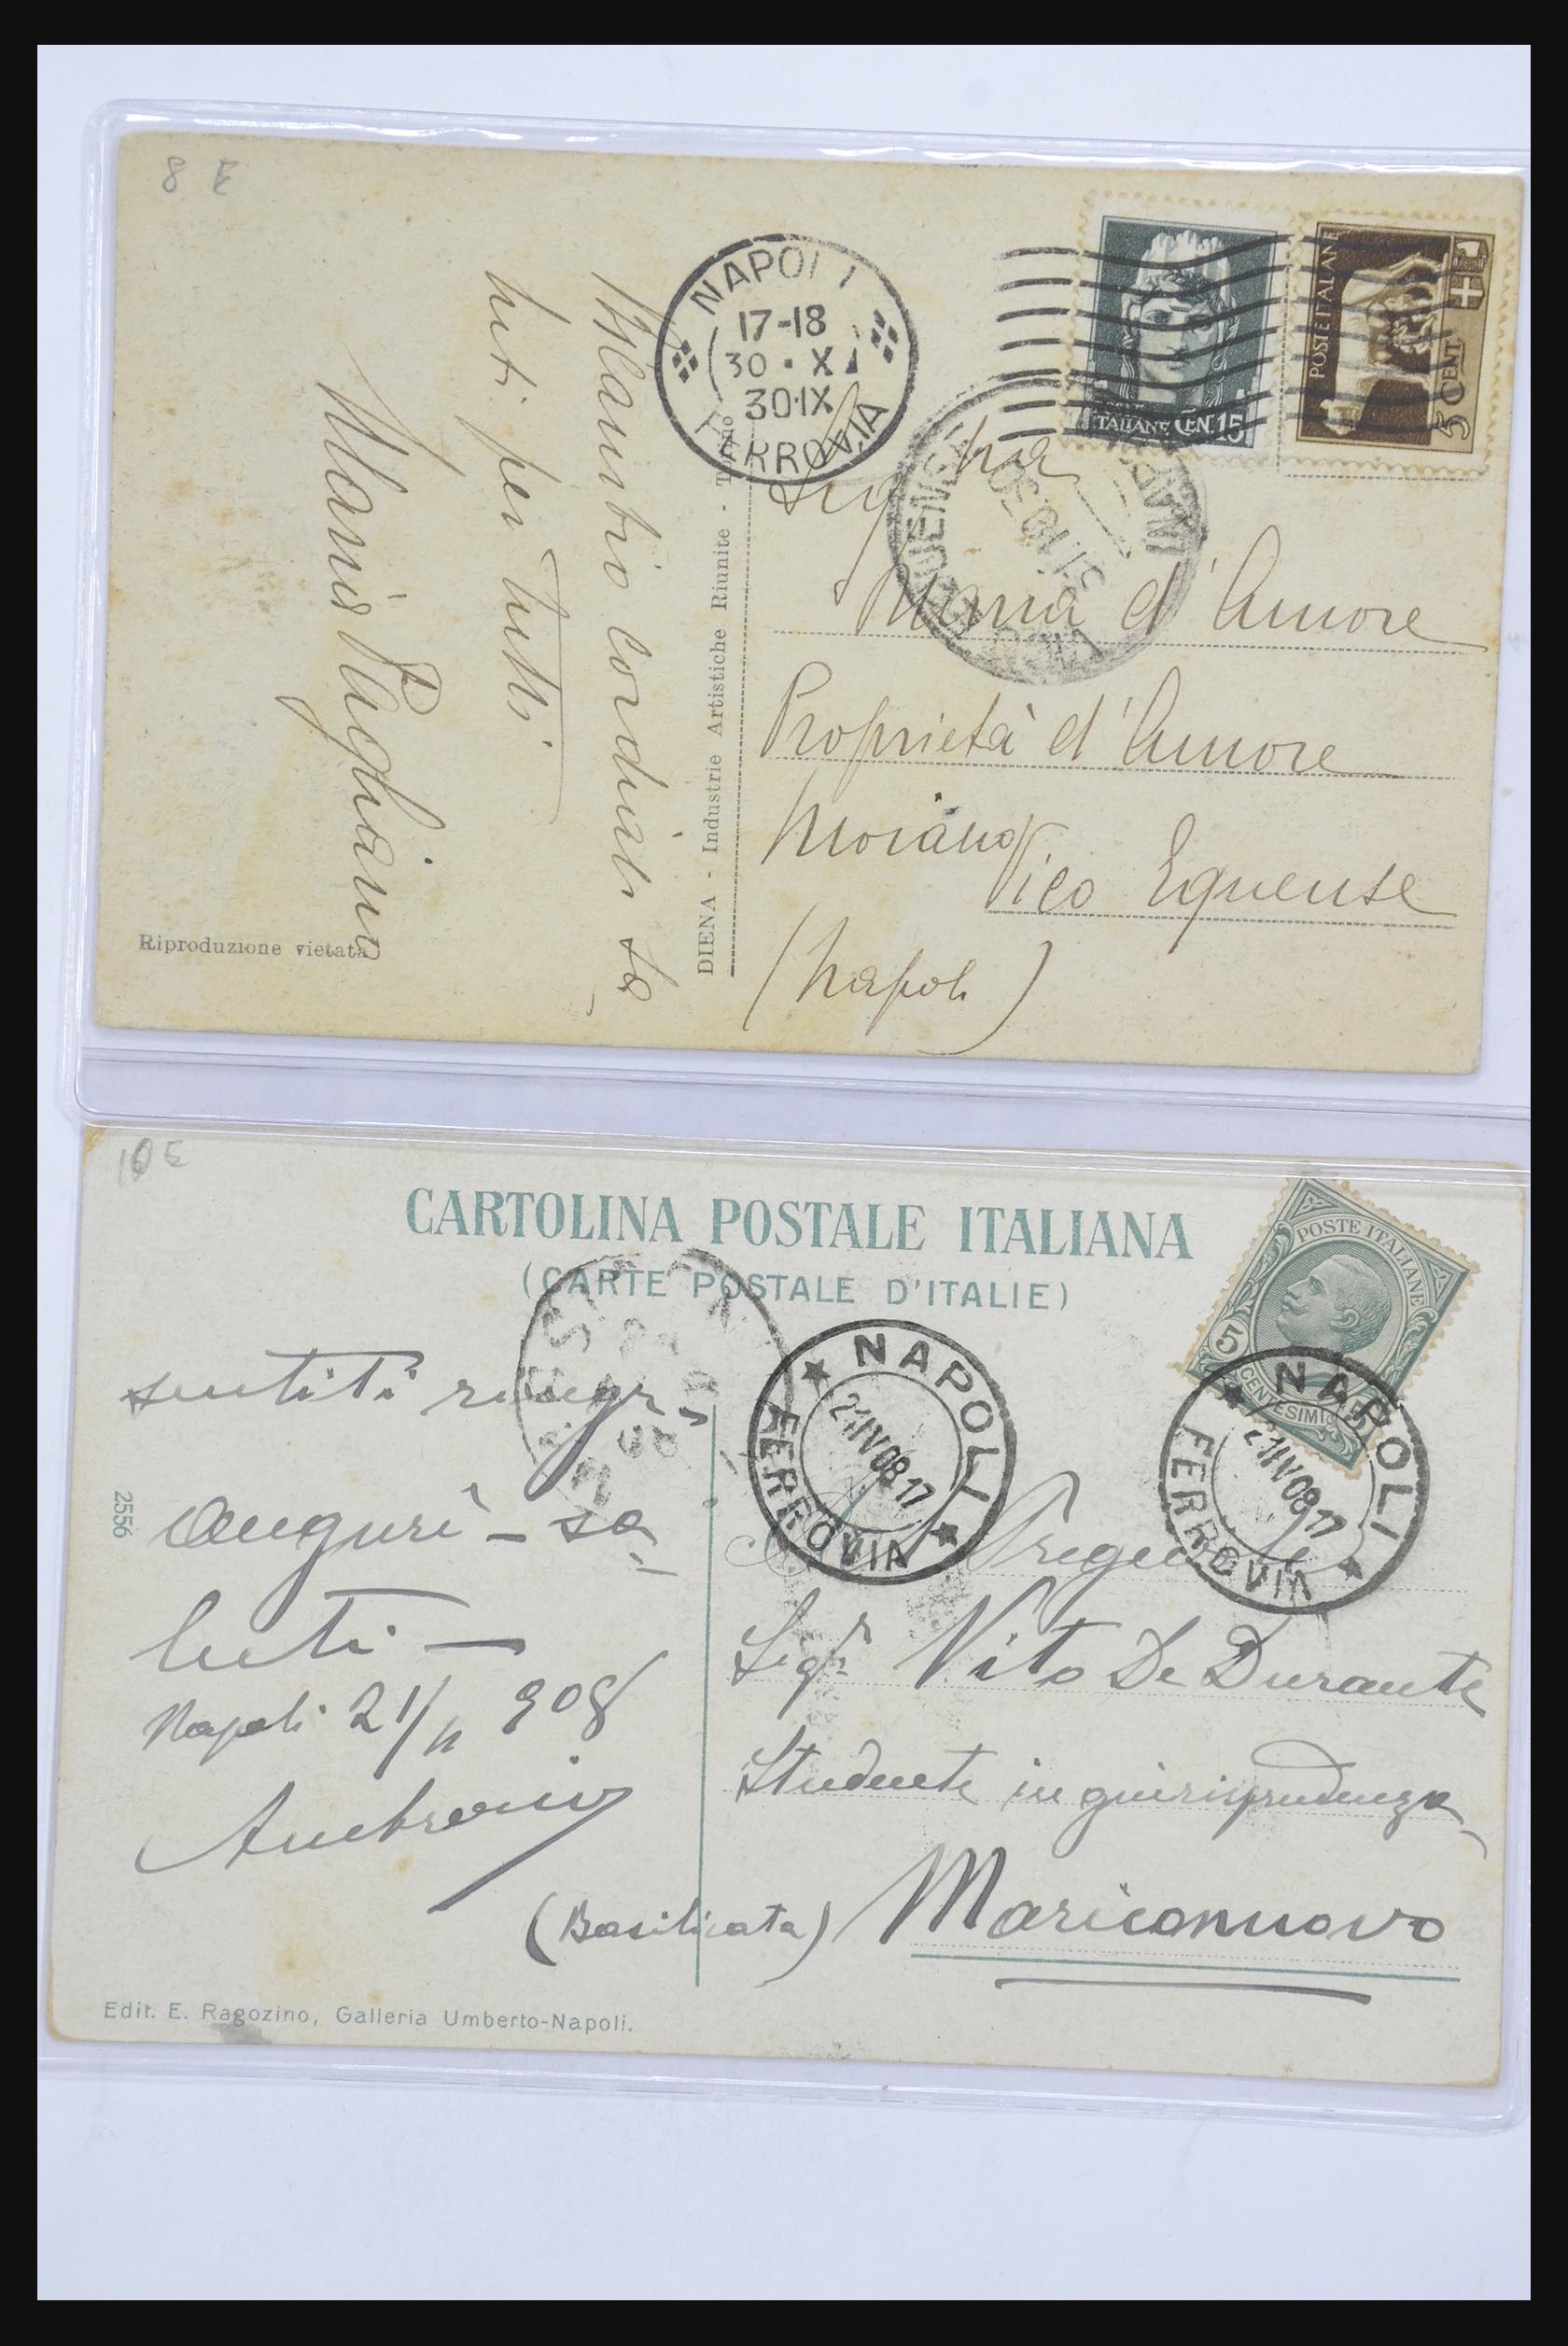 8 E
NAPOLI
17-18
30 · X
30·IX
FERROVIA
POSTE ITALIANE
CEN.15
POSTE ITALIANE
5 CENT.
31.10.30
Sig.na
Maria d'Amore
Proprietà d'Amore
Moiano
Vico Equense
(Napoli)
Ricambio cordiali sa
luti per tutti
Maria Pagliano
DIENA - Industrie Artistiche Riunite - Torino
Riproduzione vietata
10 E
CARTOLINA POSTALE ITALIANA
(CARTE POSTALE D'ITALIE)
POSTE ITALIANE
5
CENTESIMI 5
NAPOLI
21 IV 08 17
FERROVIA
NAPOLI
21 IV 08 17
FERROVIA
sentiti ringr.
auguri - sa
luti -
Napoli 21/4 908
2556
Pregev
Sigr Vito De Durante
Studente in giurisprudenza
(Basilicata) Mariconuovo
Edit. E. Ragozino, Galleria Umberto-Napoli.